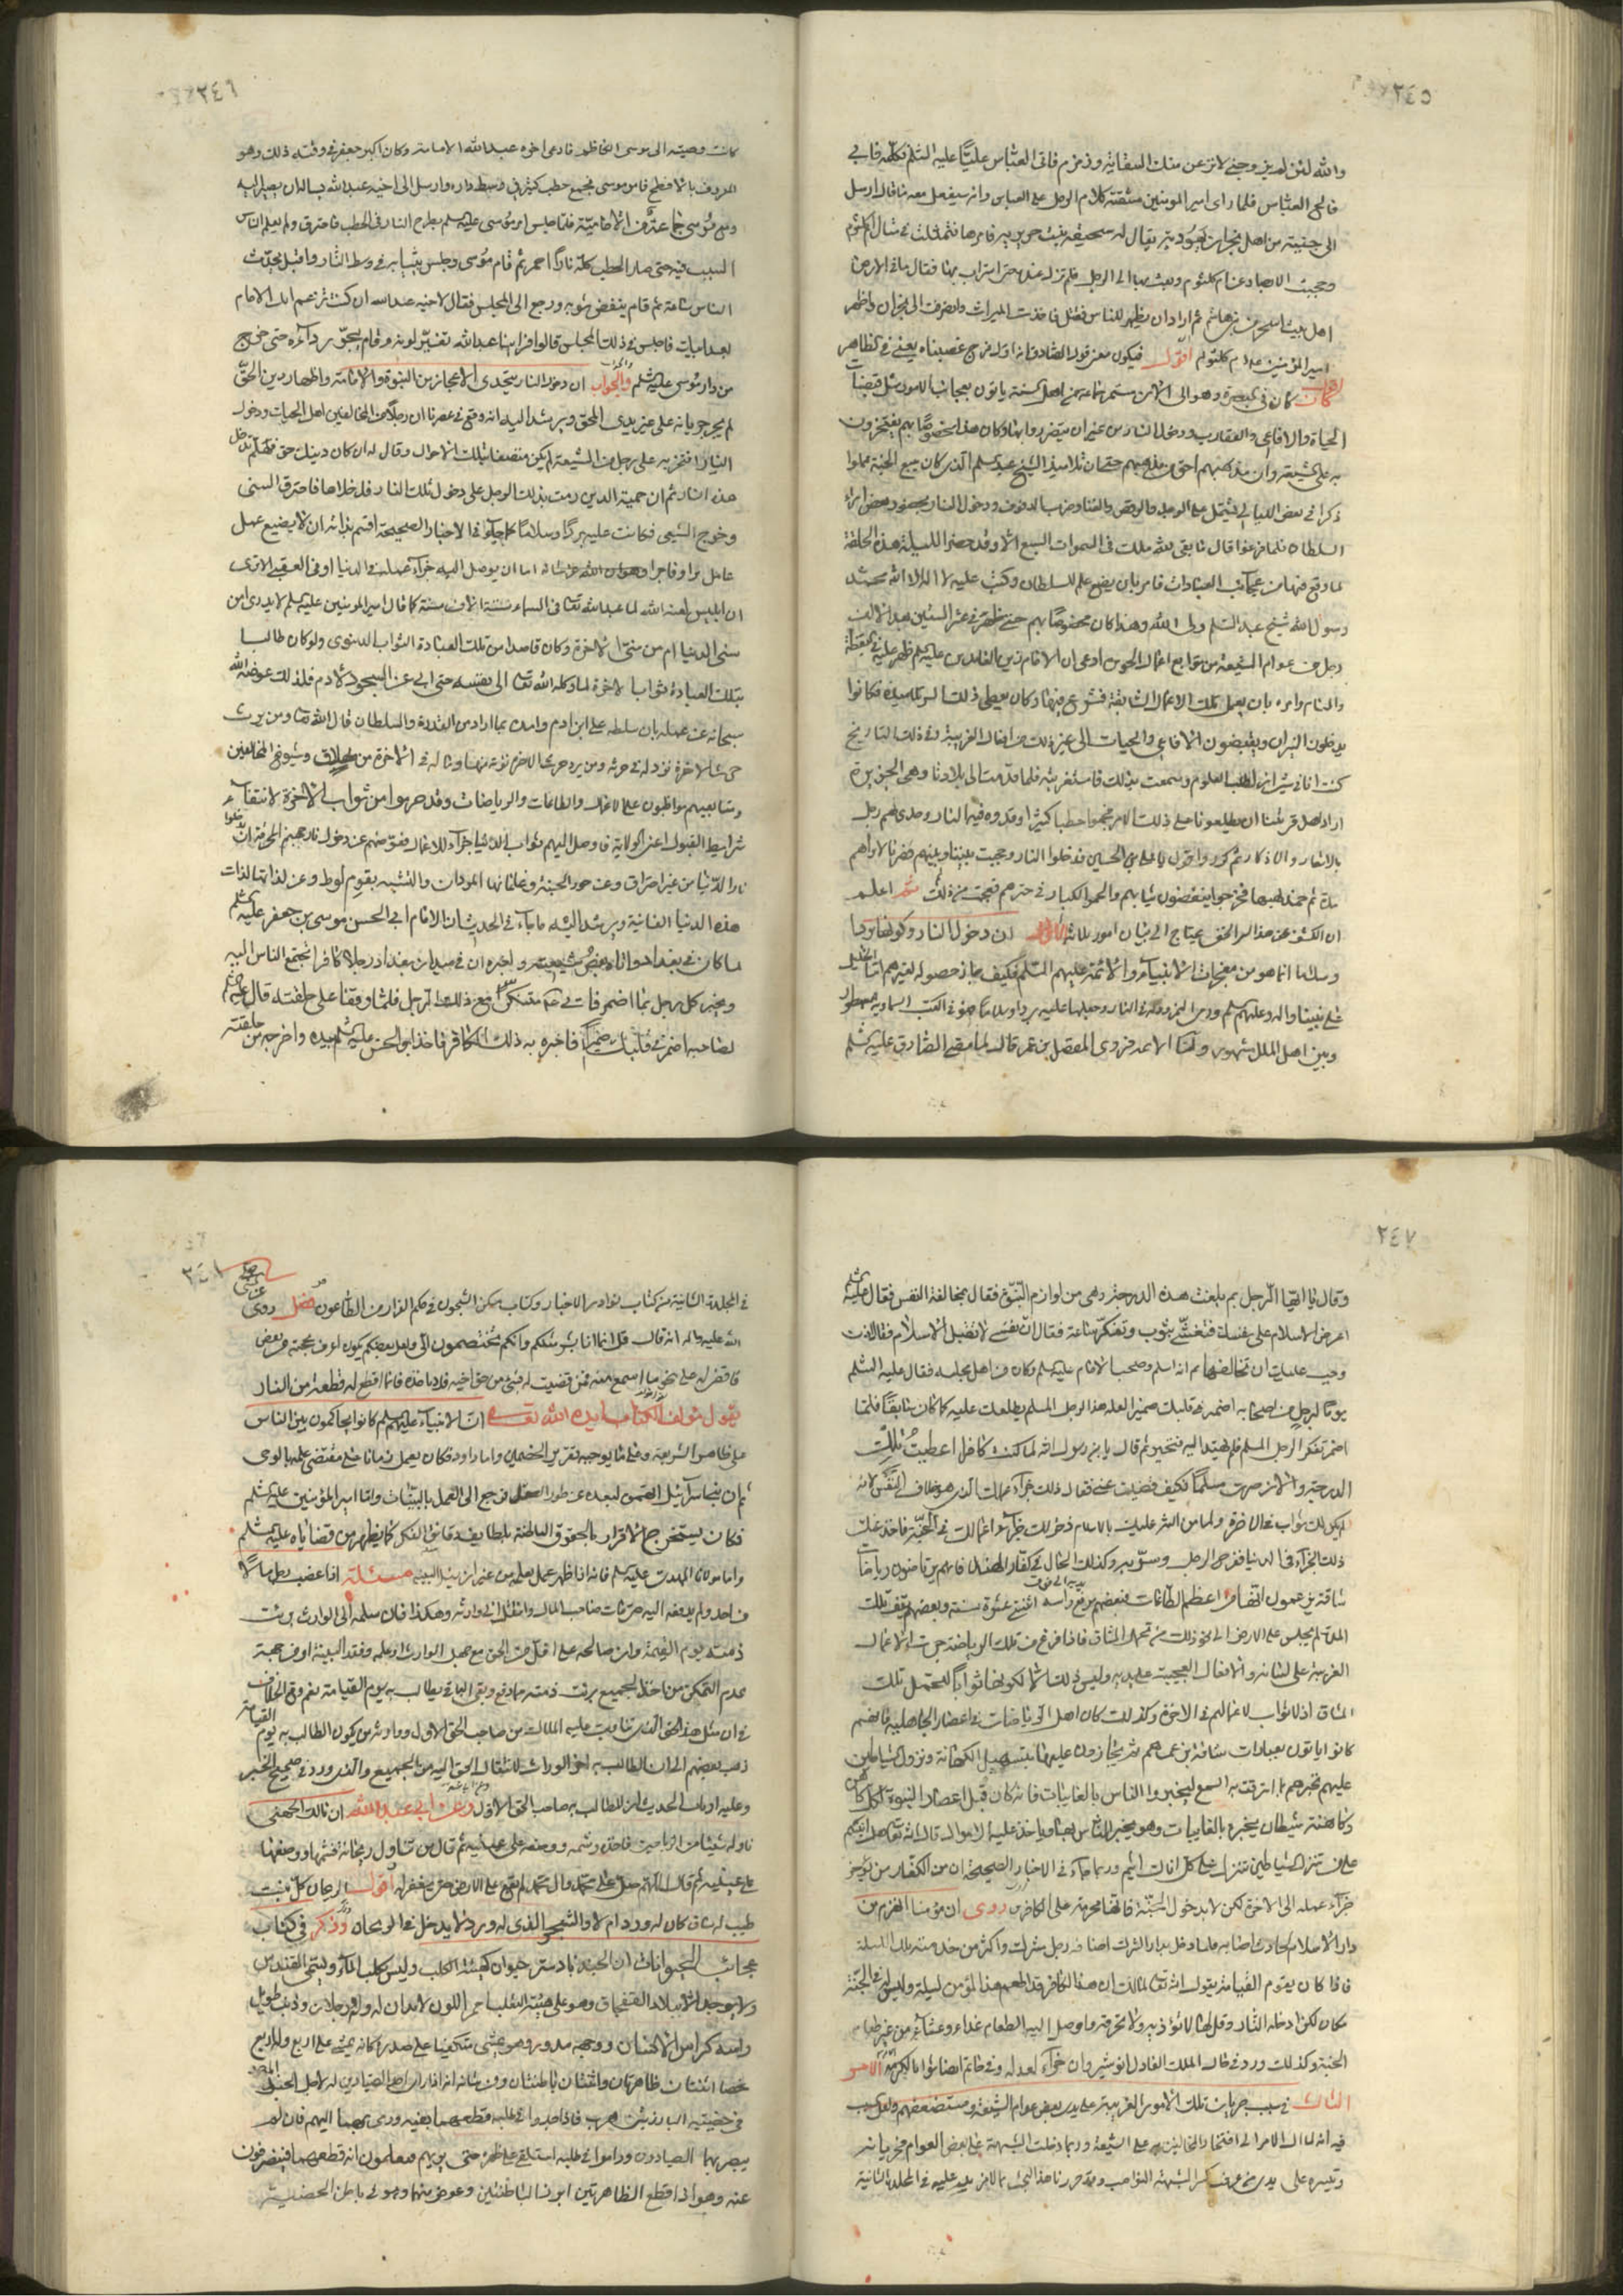 ٢٤٥
والله لئن لم يزوجني لانزعن منك السقاية وزمزم فاتى العباس عليا عليه السلم فكلمه فابى
فالح العباس فلما راى امير المومنين مشقة كلام الرجل على العباس وانه سيفعل معه ما قال ارسل
الى جنية من اهل نجران يهودية يقال لها سحيقة بنت حريرية فامرها فتمثلت في مثال ام كلثوم
وحجبت الابصار عن ام كلثوم وبعث بها الى الرجل فلم تزل عنده حتى استراب بها فقال ما في الارض
اهل بيت اسحر من بني هاشم ثم اراد ان يظهر للناس فقتل فاخذت الميراث وانصرفت الى نجران واظهر
امير المؤمنين عم ام كلثوم اقول فيكون معنى قول الصادق انه اول فرج غصبناه يعني في الظاهر
كان في البصرة وهو الى الان مستمر جماعة من اهل السنة ياتون بعجائب الامور مثل قبضات
الحياة والافاعي والعقارب ودخول النار من غير ان يتضرروا بها وكان هذا مخصوصا بهم يفتخرون
به على الشيعة وان مذهبهم احق من مذهبهم حتى ان تلاميذ الشيخ عبد السلم الذي كان يبيع الجنة عملوا
ذكرا في بعض الليالي يشتمل على الوجد والرقص والغناء وضرب الدفوف ودخول النار بحضور بعض امراء
السلطان فلما فرغوا قال ما بقي لله ملك في السموات السبع الا وقد حضر الليلة هذه الحلقة
لما وقع فيها من عجائب العبادات فامر بان يضع علم للسلطان وكتب عليه لا اله الا الله محمد
رسول الله شيخ عبد السلم ولي الله وهذا كان مخصوصا بهم حتى ظهر في عشر الستين بعد الالف
رجل من عوام الشيعة من توابع اعمال الحويزة ادعى ان الامام زين العابدين عليه السلم ظهر عليه في اليقظة
والمنام وامره بان يعمل تلك الاعمال الشاقة فشرع فيها وكان يعطي ذلك السر تلاميذه فكانوا
يدخلون النيران ويقبضون الافاعي والحيات الى غير ذلك من افعال الغريبة وفي ذلك التاريخ
كنت انا في شيراز لطلب العلوم وسمعت بذلك فاستغربته فلما قدمت الى بلادنا وهي الجزيرة
اراد اهل قريتنا ان يطلعونا على ذلك الامر فجمعوا حطبا كثيرا اوقدوه فيه النار وحدى لهم رجل
بالاشعار والاذكار ثم كوروا وقول يا علي بن الحسين فدخلوا النار وحجبت بيننا وبينهم فصرنا لا نراهم
مدة ثم خمد لهبها فخرجوا ينفضون ثيابهم والجمر الكبار في حزمهم فعجبت من ذلك ثم اعلم
ان الكشف عن هذا السر الخفي يحتاج الى بيان امور ثلاثة الاول ان دخول النار وكونها بردا
وسلاما انما هو من معجزات الانبياء والائمة عليهم السلم فكيف جاز حصوله لغيرهم اما الخليل
على نبينا واله وعليهم السلم ورمي النمرود له في النار وجعلها عليه بردا وسلاما فهو في الكتب السماوية مسطور
وبين اهل الملل مشهور واما الائمة فروى المفضل بن عمر قال لما مضى الصادق عليه السلم
٢٤٦
كانت وصيته الى موسى الكاظم فادعى اخوه عبد الله الامامة وكان اكبر ولد جعفر في وقته ذلك وهو
المعروف بالافطح فامر موسى بجمع حطب كثير في وسط داره وارسل الى اخيه عبد الله يساله ان يصير اليه
ومع موسى جماعة من الامامية فلما جلس امر موسى عليه السلم بطرح النار في الحطب فاحترق ولم يعلم الناس
السبب فيه حتى صار الحطب كله نارا احمر ثم قام موسى وجلس بثيابه في وسط النار واقبل يحدث
الناس ساعة ثم قام ينفض ثوبه ورجع الى المجلس فقال لاخيه عبد الله ان كنت تزعم انك الامام
بعد ابيك فاجلس في ذلك المجلس قالوا فراينا عبد الله تغير لونه وقام يجر رداءه حتى خرج
من دار موسى عليه السلم والجواب ان دخول النار يتحدى الاعجاز من النبوة والامامة واظهار دين الحق
لم يجز جريانه على غير يدي المحق ويرشد اليه انه وقع في عصرنا ان رجلا من المخالفين اهل الحيات ودخول
النيار افتخر به على رجل من الشيعة لم يكن متصفا بتلك الاحوال وقال له ان كان دينك حق فهلم ندخل
هذه النار ثم ان حمية الدين رمت بذلك الرجل على دخول تلك النار فدخلاها فاحترق السني
وخرج الشيعي فكانت عليه بردا وسلاما كما جاء في الاخبار الصحيحة اقسم بذاته ان لا يضيع عمل
عامل برا وفاجرا اما ان يوصل اليه جزاء عمله في الدنيا او في العقبى الا ترى
ان ابليس لعنه الله لما عبد الله تعالى في السماء ستة الاف سنة كما قال امير المومنين عليه السلم لا يدرى امن
سني الدنيا ام من سني الاخرة وكان قاصدا من تلك العبادة الثواب الدنيوي ولو كان طالبا
بتلك العبادة ثوابا لاخرة لما وكله الله تعالى الى نفسه حتى ابى عن السجود لادم فلذلك عوضه الله
سبحانه عن عمله بان سلطه على ابن ادم وامده بما اراد من القدرة والسلطان قال الله تعالى ومن يرد
حرث الاخرة نزد له في حرثه ومن يرد حرث الدنيا نؤته منها وما له في الاخرة من خلاق وشيوخ المخالفين
ومتابعيهم مواظبون على الاعمال والطاعات والرياضات وقد حرموا من ثواب الاخرة لانتفاء
شرايط القبول اعني الولاية فاوصل اليهم ثواب الدنيا جزاء للاعمال فعوضهم عن دخول نار جهنم المحرقة ان دخلوا
نار الدنيا من غير احتراق وعن حور الجنة وغلمانها المردان والتشبه بقوم لوط وعن لذاتها لذات
هذه الدنيا الفانية ويرشد اليه ما جاء في الحديث ان الامام ابي الحسن موسى بن جعفر عليه السلم
لما كان في بغداد اتاه بعض شيعته واخبره ان في ميدان بغداد رجلا كافرا تجتمع الناس اليه
ويخبر كل رجل بما اضمر فاتى متنكرا مع ذلك الرجل فلما وقفا على حلقته قال عليه السلم
لصاحبه اضمر في قلبك ضميرا فاخبره به ذلك الكافر فاخذ ابو الحسن عليه السلم بيده واخرجه من حلقته
٢٤٧
وقال يا ايها الرجل بم بلغت هذه الدرجة وهي من لوازم النبوة فقال بمخالفة النفس فقال عليه السلم
اعرض الاسلام على نفسك فتغشى بثوب وتفكر ساعة فقال ان نفسي لا تقبل الاسلام فقال اذن
وجب عليك ان تخالفها ثم انه اسلم وصحب الامام عليه السلم وكان من اهل مجلسه فقال عليه السلم
يوما لرجل من اصحابه اضمر في قلبك ضميرا لعل هذا الرجل المسلم يطلعك عليه كما كان سابقا فلما
اضمر تفكر الرجل المسلم فلم يهتد اليه فتحير ثم قال يا ابن رسول الله لما كنت كافرا اعطيت تلك
الدرجة والان صرت مسلما فكيف قصرت عنه فقال ذلك جزاء عملك الذي هو خلاف النفس لانه
لم يكن لك ثواب في الاخرة ولما من الله عليك بالاسلام ذخر لك جزاء اعمالك في الجنة فاخذ عنك
ذلك الجزاء في الدنيا ففرح الرجل وسر به وكذلك الحال في كفار الهند فانهم يرتاضون رياضات
شاقة يزعمون انها من اعظم الطاعات فبعضهم يرفع راسه اثنتي عشرة سنة وبعضهم يقف تلك
المدة لم يجلس على الارض الى نحو ذلك من تحمل المشاق فاذا فرغ من تلك الرياضة جرت الاعمال
الغريبة على لسانه والافعال العجيبة على يديه وليس ذلك الا لكونها ثوابا لتحمل تلك
المشاق اذ لا ثواب لاعمالهم في الاخرة وكذلك كان اهل الرياضات في اعصار الجاهلية فانهم
كانوا ياتون بعبادات شاقة بزعمهم ثم يجازون عليها بتسهيل الكهانة ونزول الشياطين
عليهم تخبرهم بما استرقت به السمع ليخبروا الناس بالغايبات فانه كان قبل اعصار النبوة لكل كاهن
وكاهنة شيطان يخبره بالغايبات وهو يخبر الناس بها وياخذ عليه الاموال قال الله تعالى هل انبئكم
على من تنزل الشياطين تنزل على كل افاك اثيم وربما جاء في الاخبار الصحيحة ان من الكفار من يؤخر
جزاء عمله الى الاخرة لكن لا بدخول الجنة فانها محرمة على الكافرين روى ان مؤمنا انهزم من
دار الاسلام لحادث اصابه فلما دخل بدار الشرك اضافه رجل مشرك واكثر من خدمته تلك الليلة
فاذا كان يوم القيامة يقول الله تعالى لمالك ان هذا الكافر قد اطعم هذا المؤمن ليلة وليس له في الجنة
مكان لكن ادخله النار وقل لها لا تؤذيه ولا تحرقه واوصل اليه الطعام غداء وعشاء من غير طعام
الجنة وكذلك ورد في حال الملك العادل انوشيروان جزاء لعدله وفي حاتم ايضا ثوابا لكرمه الامر
الثالث في سبب جريان تلك الامور الغريبة على يدي بعض عوام الشيعة ومستضعفهم ولعل السبب
فيه انه لما ال الامر الى افتخار المخالفين به على الشيعة وربما دخلت الشبهة على بعض العوام فجريانه
وتيسره على يدي عوام الشيعة كسر الشبهة النواصب وقد حررنا هذا البحث بما لا مزيد عليه في المجلدة الثانية
٢٤٨
في المجلدة الثانية من كتاب نوادر الاخبار وكتاب مسكن الشجون في حكم الفرار من الطاعون فصل روى
الله عليه واله انه قال قل انما انا بشر مثلكم وانكم تختصمون الي ولعل بعضكم يكون اعرف بحجته من بعض
فاقضي له على نحو ما اسمع منه فمن قضيت له بشيء من حق اخيه فلا ياخذه فانما اقطع له قطعة من النار
يقول مؤلف الكتاب ايده الله تعالى ان الانبياء عليهم السلم كانوا يحاكمون بين الناس
على ظاهر الشريعة وعلى ما يوجبه تقرير الخصمين واما داود فكان يعمل زمانا على مقتضى علمه بالوحي
ثم ان بني اسرائيل اتهموه لبعده عن طور العقل فرجع الى العمل بالبينات واما امير المؤمنين عليه السلم
فكان يستخرج الاقرار بالحقوق الباطنة بلطايف دقائق الفكر كما يظهر من قضاياه عليه السلم
واما مولانا المهدي عليه السلم فانه اذا ظهر عمل بعلمه من غير ان يسئل البينة مسئلة اذا غصب رجل مالا
من احد ولم يدفعه اليه حتى مات صاحب المال وانتقل الى وارثه وهكذا فان سلمه الى الوارث برئت
ذمته يوم القيمة وان صالحه على اقل من الحق مع جهل الوارث او علمه وفقد البينة او من جهة
عدم التمكن من اخذ الجميع برئت ذمته مما دفع وبقي الباقي يطالب به يوم القيامة نعم وقع الخلاف
في ان مثل هذا الحق الذي تناوبت عليه الملاك من صاحب الحق الاول ووارثه من يكون الطالب به يوم القيامة
ذهب بعضهم الى ان الطالب به اخر الوراث لانتقال الحق اليه من الجميع والذي ورد في صحيح الخبر
وعليه ارباب الحديث ان المطالب به صاحب الحق الاول وعن ابي عبد الله ان مالك الجهني
ناوله شيئا من الرياحين فاخذه وشمه ووضعه على عينيه ثم قال من تناول ريحانة فشمها ووضعها
على عينيه ثم قال اللهم صل على محمد وال محمد لم تقع على الارض حتى يغفر له اقول الريحان كل نبت
طيب له ساق كان له ورد ام لا والشجر الذي له ورد لا يدخل في الريحان وذكر في كتاب
عجائب الحيوانات ان الجند بادستر حيوان كهيئة الكلب وليس كلب الماء ويسمى القندس
ولا يوجد الا ببلاد القفجاق وهو على هيئة الثعلب احمر اللون لا يدان له وله رجلان وذنب طويل
وراسه كراس الانسان ووجهه مدور وهو يمشي متكفيا على صدره كانه يمشي على اربع وله اربع
خصا اثنتان ظاهرتان واثنتان باطنتان ومن شانه انه اذا راى الصيادين له لاجل الجندبادستر
في خصيتيه البارزتين هرب فاذا جدوا في طلبه قطعهما بفيه ورمى بهما اليهم فان لم
يبصرهما الصيادون وداموا في طلبه استلقى على ظهره حتى يريهم فيعلمون انه قطعهما فينصرفون
عنه وهو اذا قطع الظاهرتين ابرز الباطنتين وعوض عنهما وهو في باطن الخصيتين